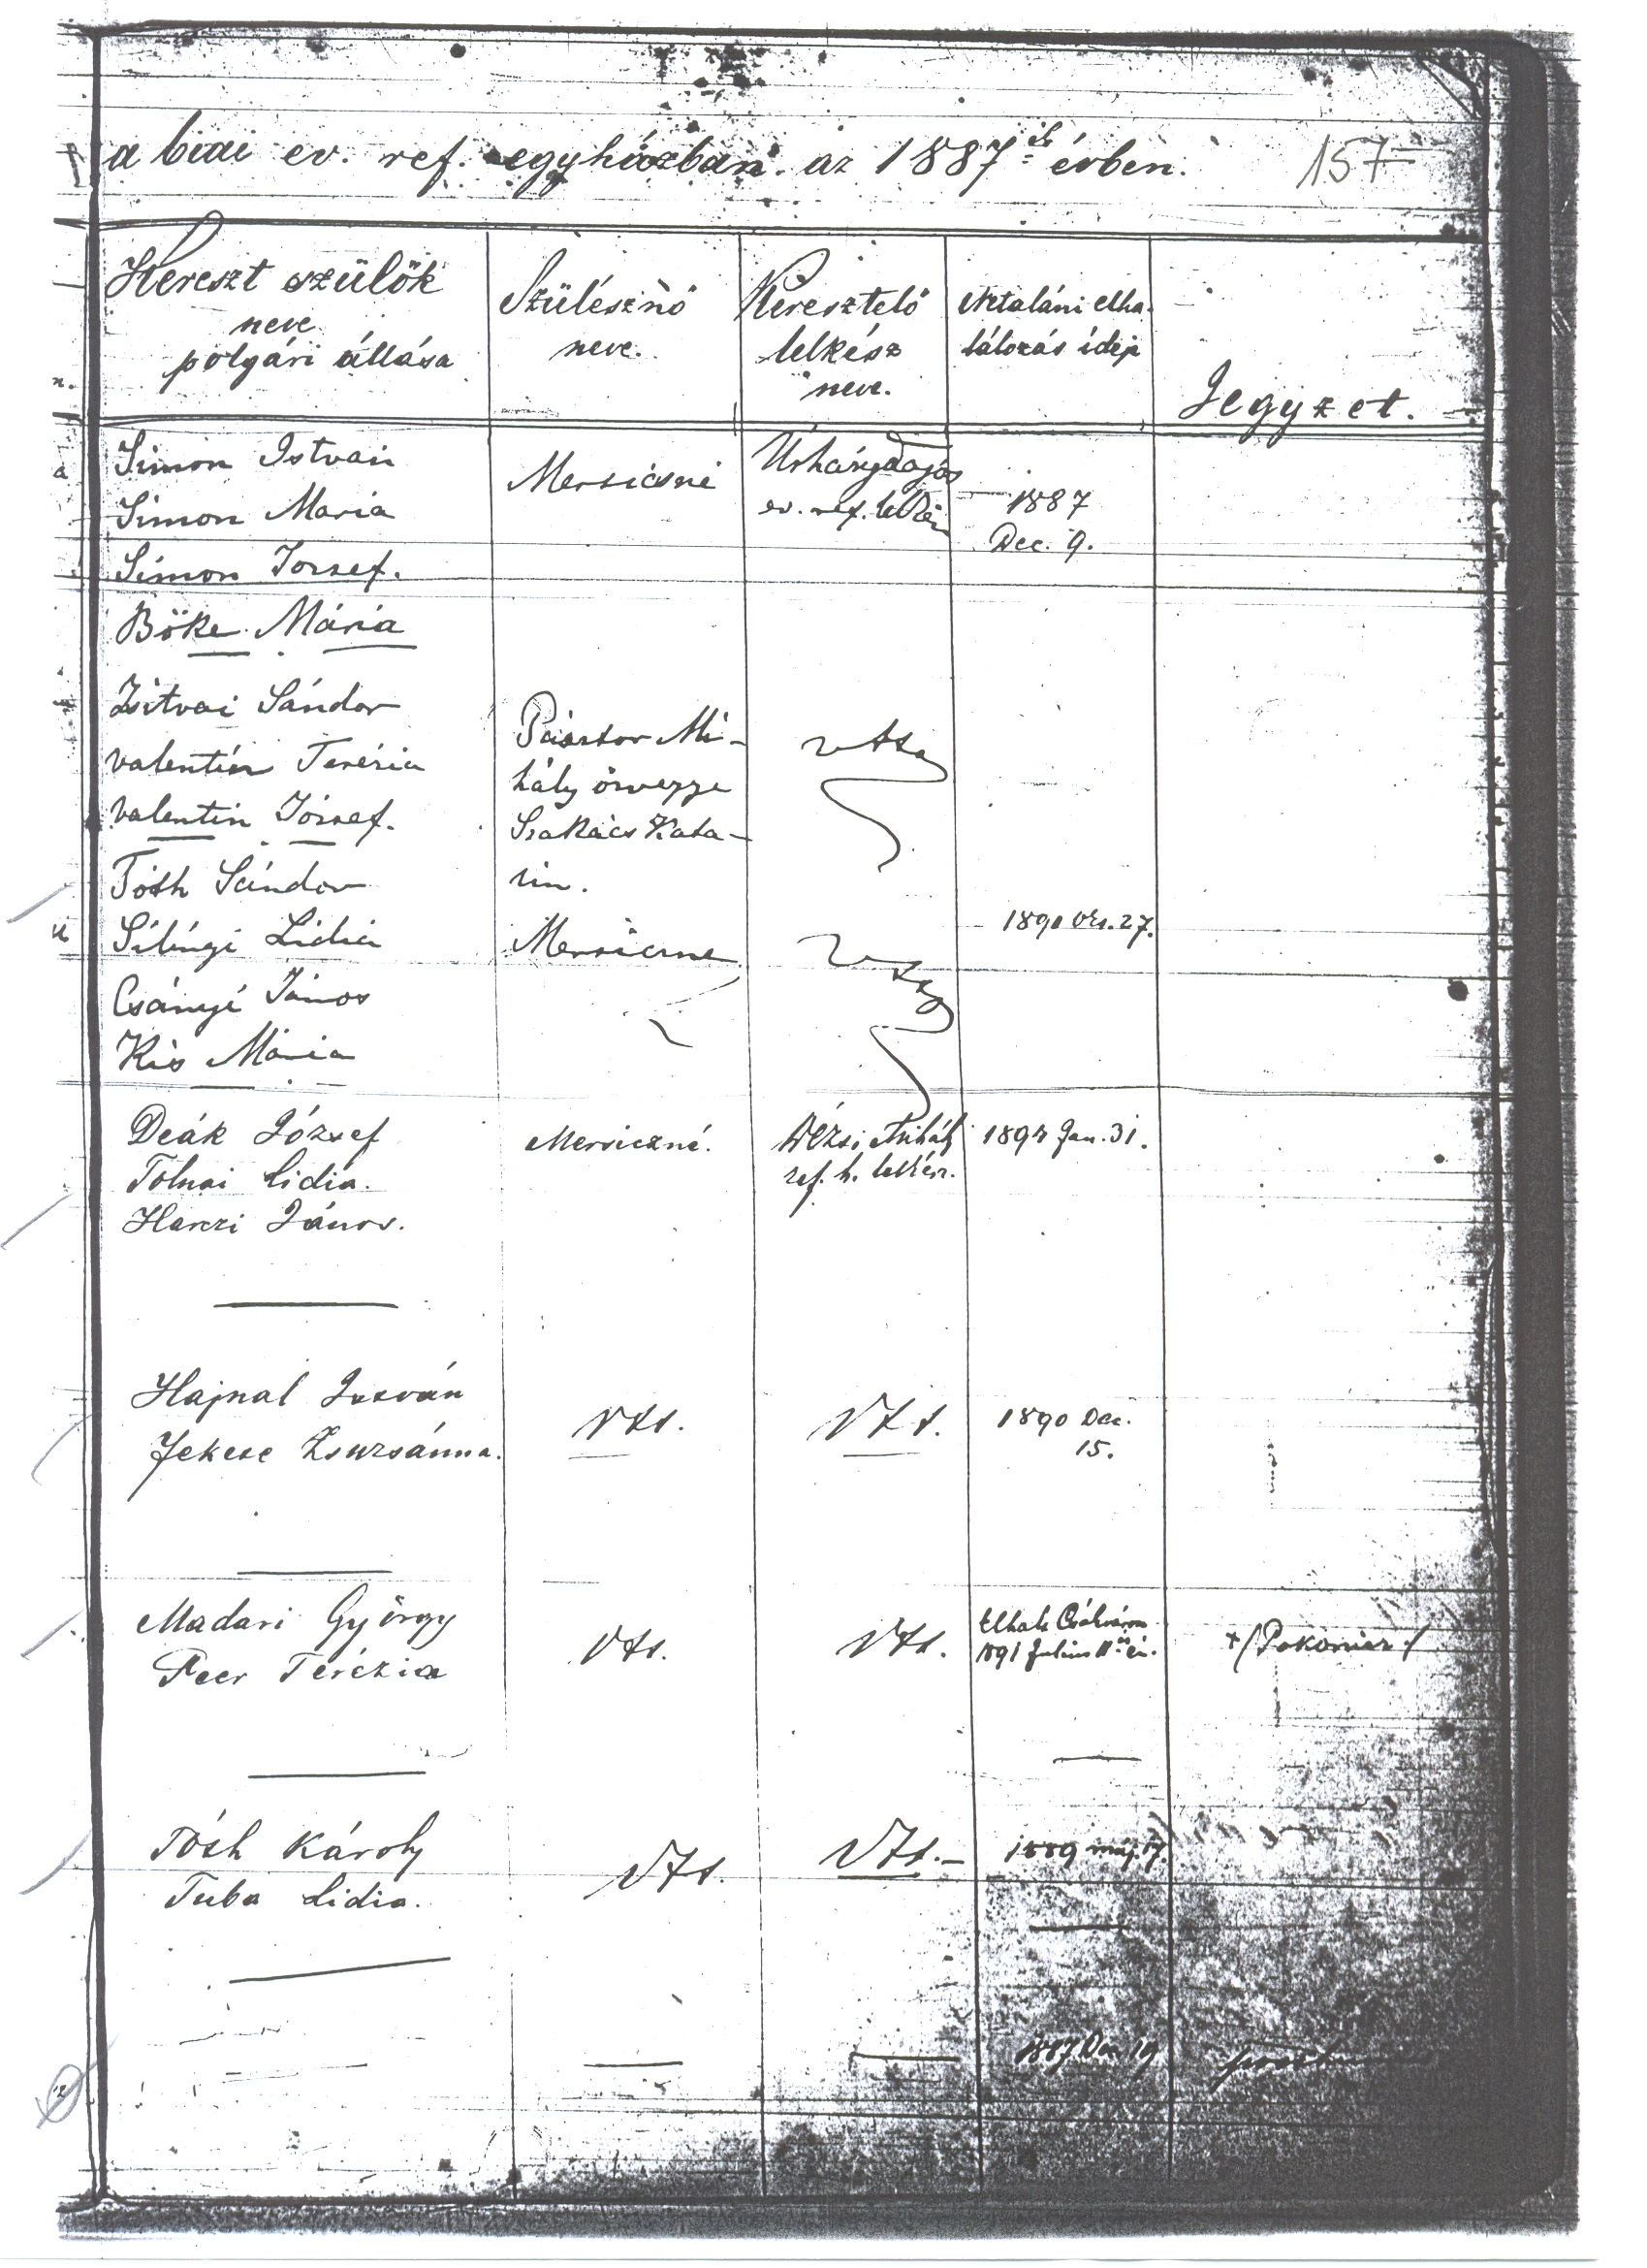 a biai ev. ref. egyházban. az 1887 ik évben. 157
Kereszt szülők
neve
polgári állása
Szülésznő
neve.
Keresztelő
lelkész
neve.
Netaláni elha-
lálozás ideje
Jegyzet.
Simon Istvan
Simon Maria
Simon Jozsef.
Böke Mária
Mersicsné
ev. ref. lelkész
1887
Dec. 9.
Zsitvai Sándor
Valentin Terézia
Valentin József.
Pásztor Mi-
hály özvegye
Szakács Kata-
lin.
Tóth Sándor
Lidia
Csányi János
Kis Mária
Mersicsne
1890 Oct. 27.
Deák József
Tolnai Lidia.
Harczi János.
Mersiczné.
Dézsi Mihály
ref. h. lelkész.
Jan. 31.
Hajnal István
Fekete Zsuzsánna.
Uts.
Uts.
1890 Dec.
15.
Madari György
Peer Terézia
Uts.
Uts.
Elhalt Csákváron
891 Julius 11 én.
Tóth Károly
Tuba Lidia.
Uts.
Uts.
1889 máj. 17.
1887 Dec. 19